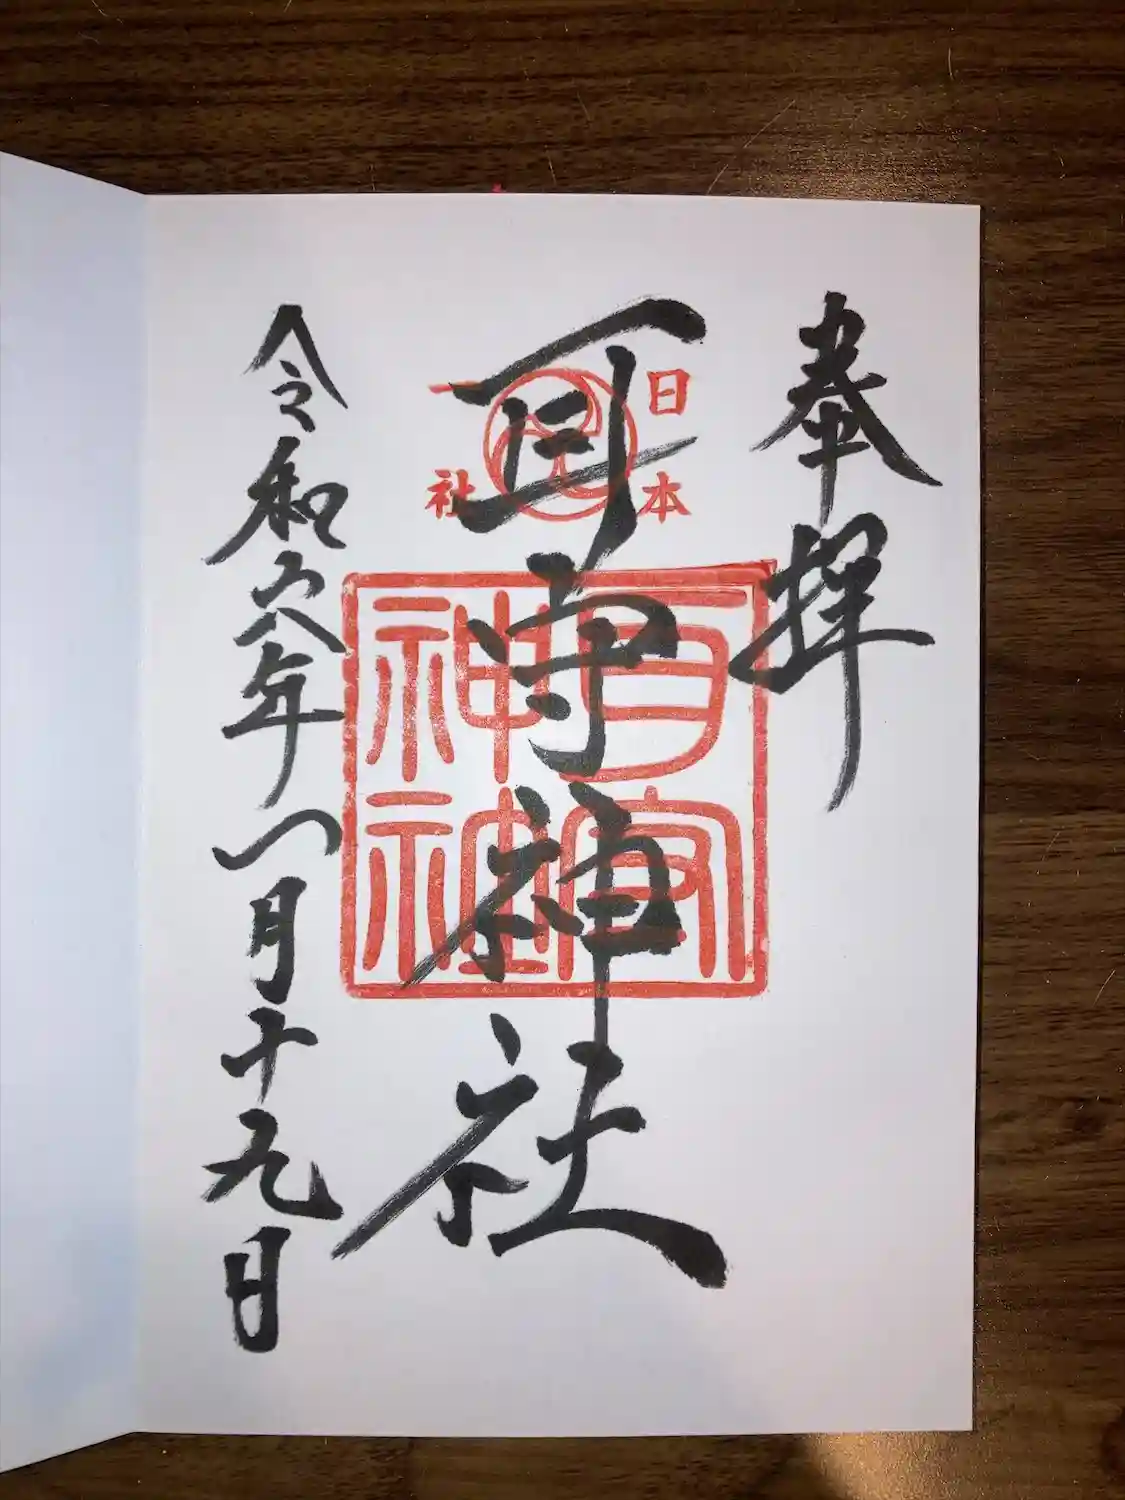 奉拝
日本
一社
耳守神社
耳守
神社
令和六年一月十九日